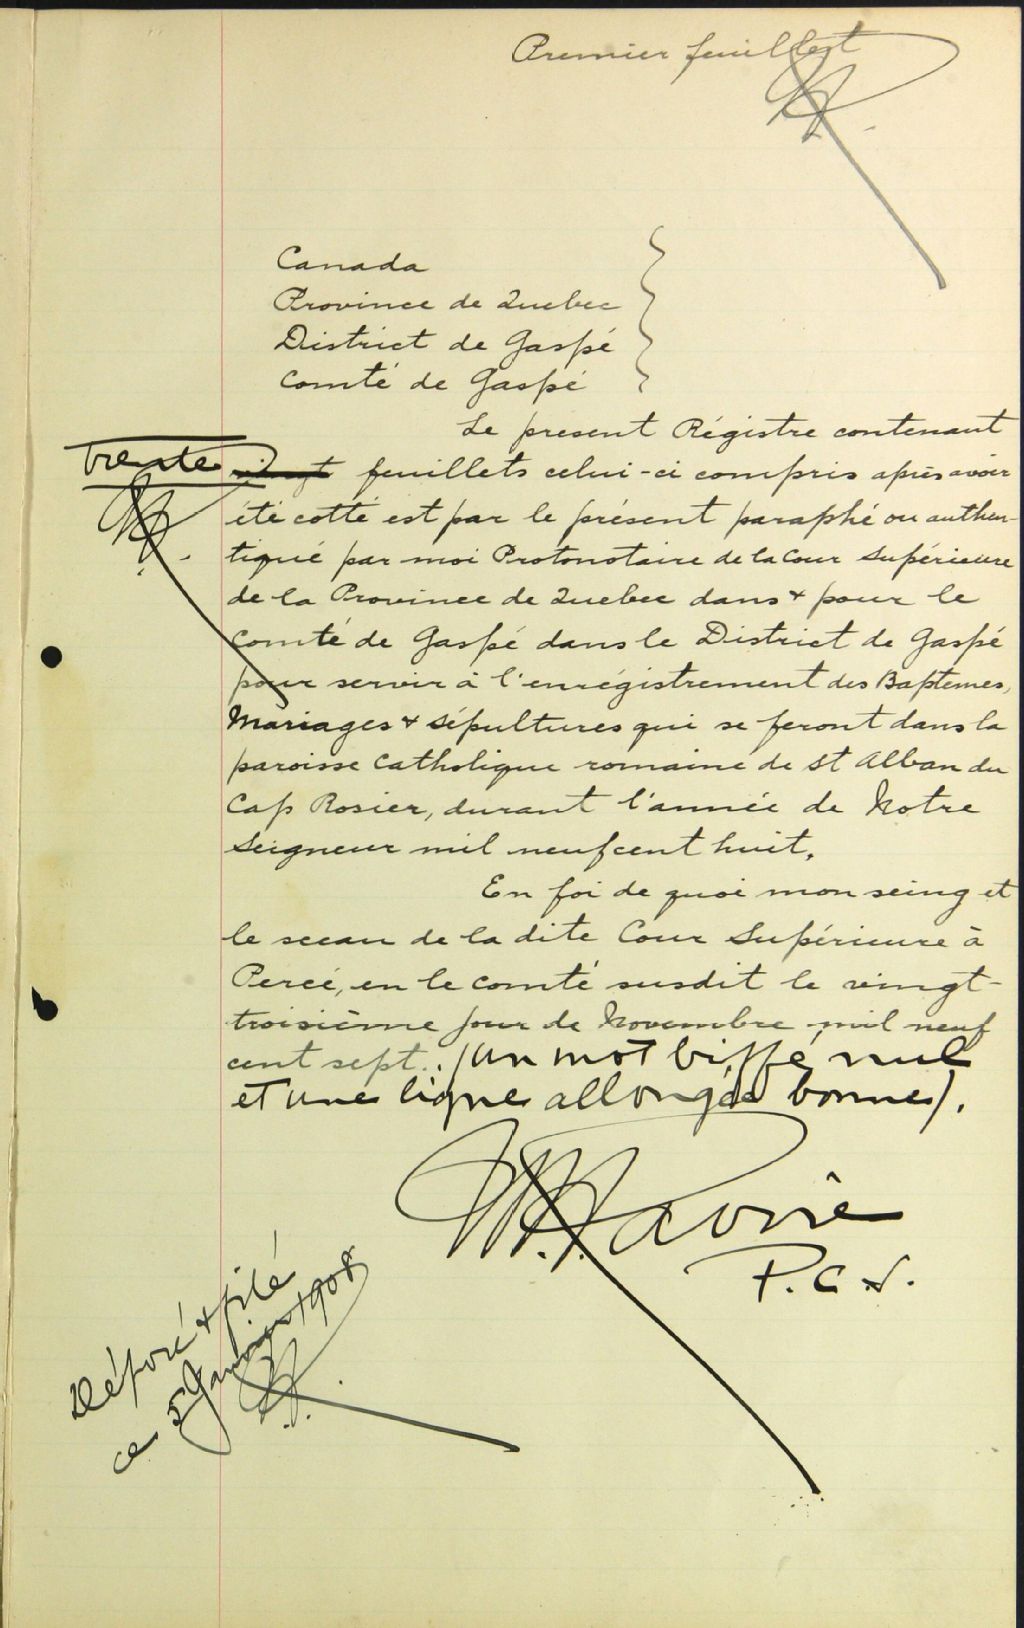 Premier feuillet
Canada
Province de Quebec
District de Gaspé
Comté de Gaspé
Le present Régistre contenant
trente vingt feuillets celui-ci compris après avoir
été cotté est par le présent paraphé ou authen-
tiqué par moi Protonotaire de la Cour Supérieure
de la Province de Quebec dans & pour le
Comté de Gaspé dans le District de Gaspé
pour servir à l'enrégistrement des Baptemes,
Mariages & sépultures qui se feront dans la
paroisse Catholique romaine de St Alban du
Cap Rosier, durant l'année de Notre
Seigneur mil neufcent huit.
En foi de quoi mon seing et
le sceau de la dite Cour Supérieure à
Percé, en le comté susdit le vingt-
troisième jour de Novembre mil neuf
cent sept. (un mot biffé nul
et une ligne allongée bonne).
Lavoie
P.C.S.
Déposé & filé
ce 5 Janvier 1908